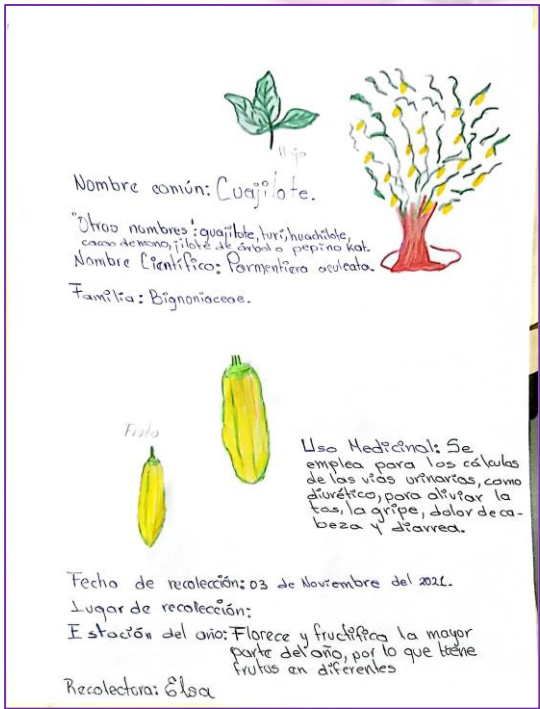 Hoja
Nombre común: Cuajilote.
"Otros nombres": guajilote, turi, huachilote,
cacao de mono, jilote de árbol o pepino kat.
Nombre Científico: Parmentiera aculeata.
Familia: Bignoniaceae.
Fruto
Uso Medicinal: Se
emplea para los cálculos
de las vías urinarias, como
diurético, para aliviar la
tos, la gripe, dolor de ca-
beza y diarrea.
Fecha de recolección: 03 de Noviembre del 2021.
Lugar de recolección:
Estación del año: Florece y fructifica la mayor
parte del año, por lo que tiene
frutos en diferentes
Recolectora: Elsa